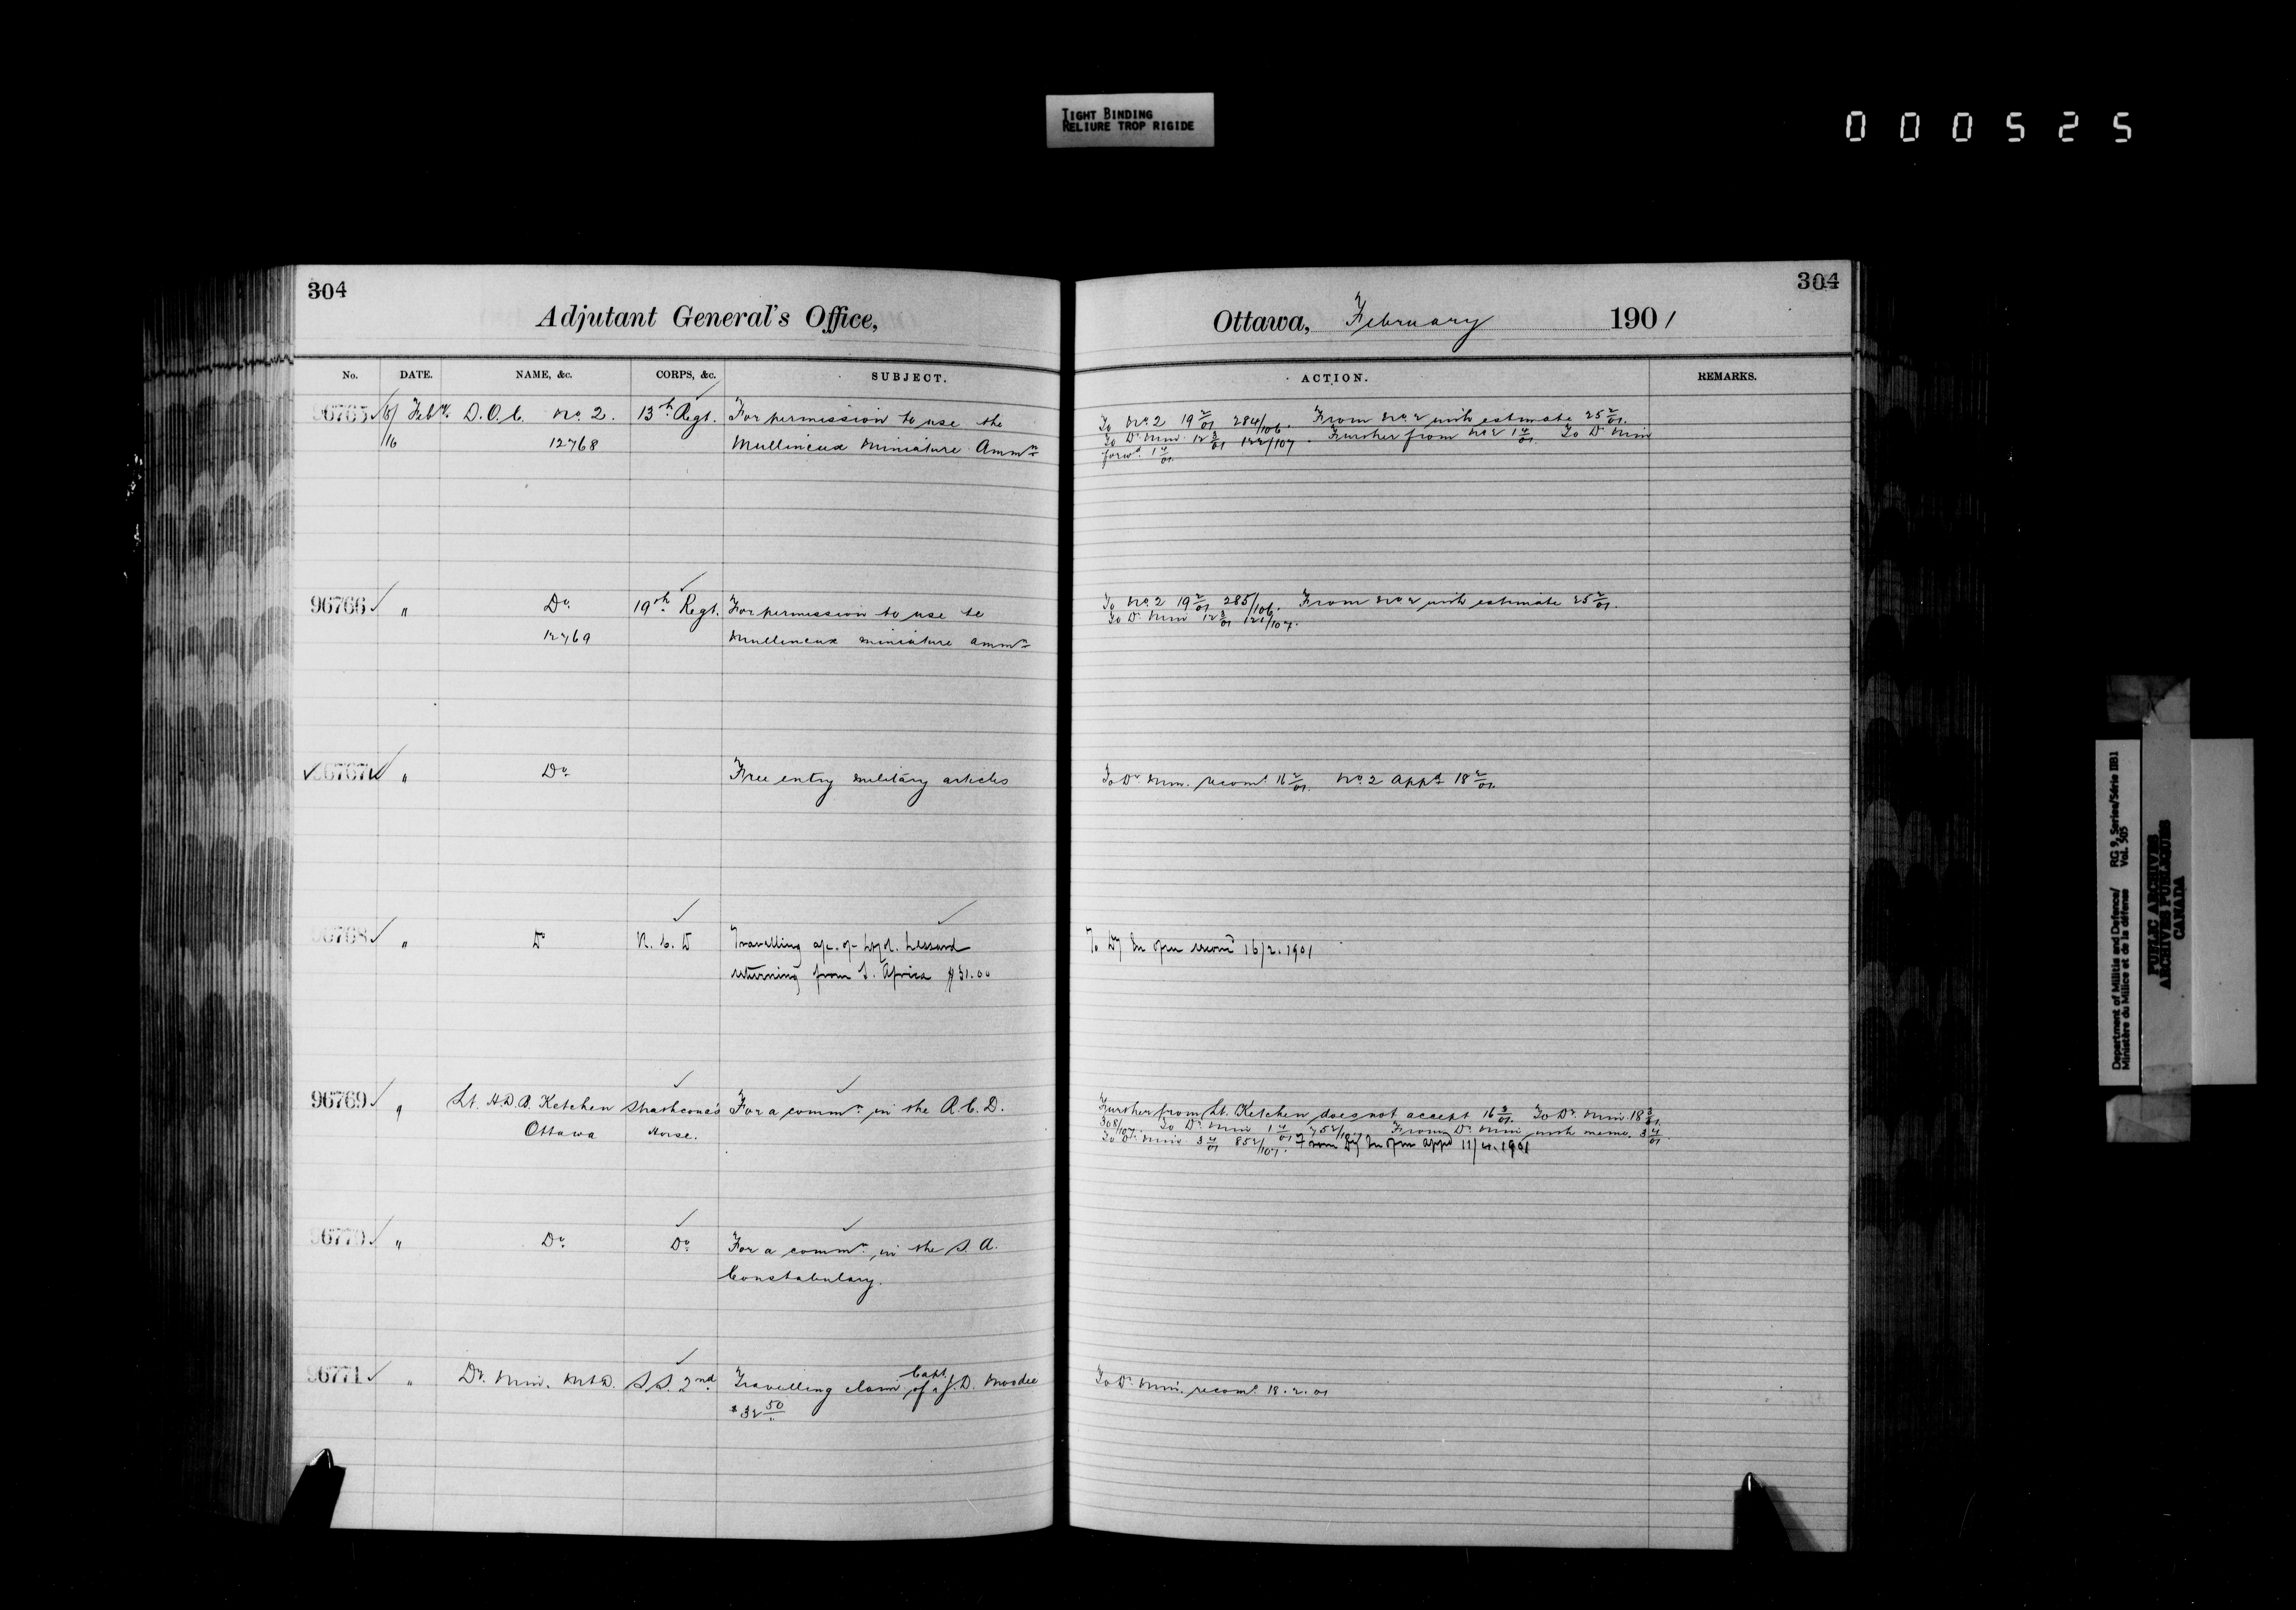 TIGHT BINDING
RELIURE TROP RIGIDE
000525
304
Adjutant General's Office,
No. DATE. NAME, &c. CORPS, &c. SUBJECT.
96765 Feby. D.O.C. No. 2. 13th Regt. For permission to use the
16 12768 Mullineux Miniature Ammn
96766 " Do. 19th Regt. For permission to use te
12769 Mullineux miniature ammn
96767 " Do. Free entry military articles
96768 " Do R.C.D Travelling a/c. of Lessard
returning from S. Africa $31.00
96769 " Lt. H.D.B. Ketchen Strathcona's For a commn. in the R.C.D.
Ottawa Horse.
96770 " Do. Do. For a commn. in the S.A.
Constabulary.
96771 " Dy. Min. M&D. S.S. 2nd. Travelling claim of Capt. J.D. Moodie
$32 50
304
Ottawa, February 1901
ACTION. REMARKS.
To No. 2 19 2/01 284/106. From No. 2 with estimate 25 2/01.
To Dy. Min. 12 3/01 122/107. Further from No. 2 1 4/01. To Dy. Min
forwd. 1 4/01.
To No. 2 19 2/01 285/106. From No. 2 with estimate 25 2/01.
To Dy. Min 12 3/01 121/107.
To Dy. Min. recomd. 16 2/01. No. 2 appd. 18 2/01.
To Dy recomd 16/2.1901
Further from Lt. Ketchen does not accept 16 3/01. To Dy. Min. 18 3/01.
308/107. To Dy. Min 1 4/01 752/107. From Dy. Min with memo. 3 4/01
To Dy. Min 3 4/01 852/107. From Dy appd 11/4.1901
To Dy. Min. recomd. 18.2.01
Department of Militia and Defence/ RG 9, Series/Série IIB1
Ministère du Milice et de la défense Vol. 505
PUBLIC ARCHIVES
ARCHIVES PUBLIQUES
CANADA